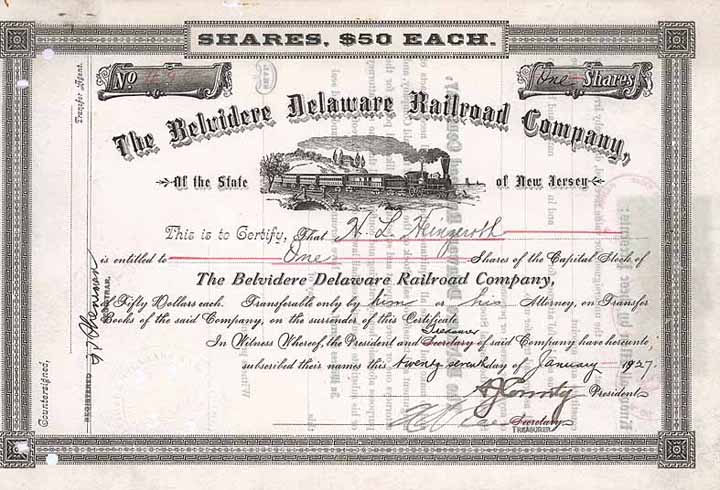 SHARES, $50 EACH.
No
One Shares
The Belvidere Delaware Railroad Company,
Of the State of New Jersey
This is to Certify, That H. L. Heingeroth
is entitled to One Shares of the Capital Stock of
The Belvidere Delaware Railroad Company,
of Fifty Dollars each. Transferable only by him or his Attorney, on Transfer
Books of the said Company, on the surrender of this Certificate.
Treasurer
In Witness Whereof, the President and Secretary of said Company have hereunto
subscribed their names this twenty seventh day of January 1927.
President
Secretary
TREASURER
Transfer Agent.
Countersigned,
REGISTERED
REGISTRAR.